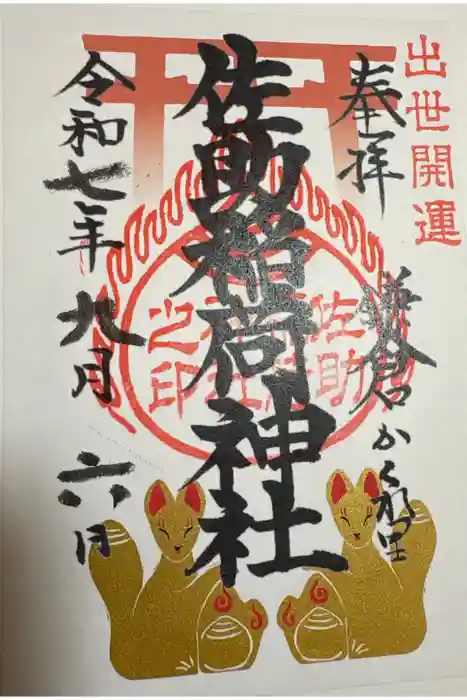 出世開運
奉拝
鎌倉かくれ里
佐助稲荷神社
佐助稲荷神社之印
令和七年九月六日